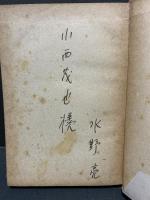 小西茂也様
水野亮